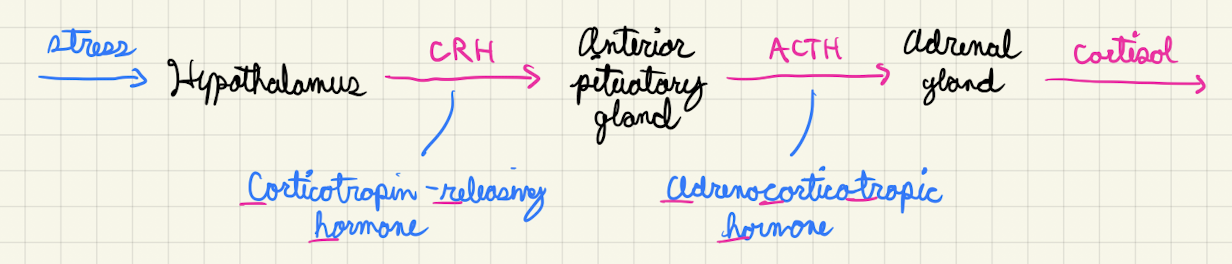 stress
Hypothalamus
CRH
Anterior
pituatory
gland
ACTH
Adrenal
gland
Cortisol
Corticotropin-releasing
hormone
Adrenocorticotropic
hormone